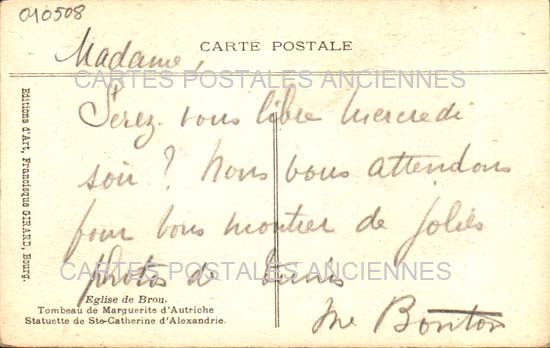 010508
Madame,
CARTE POSTALE
CARTES POSTALES ANCIENNES
Serez vous libre mercredi
soir ? Nous vous attendons
pour vous montrer de jolies
photos de Tunis
CARTES POSTALES ANCIENNES
Me Bonton
Eglise de Brou.
Tombeau de Marguerite d'Autriche
Statuette de Ste-Catherine d'Alexandrie.
Editions d'Art, Francisque GIRARD, Bourg.